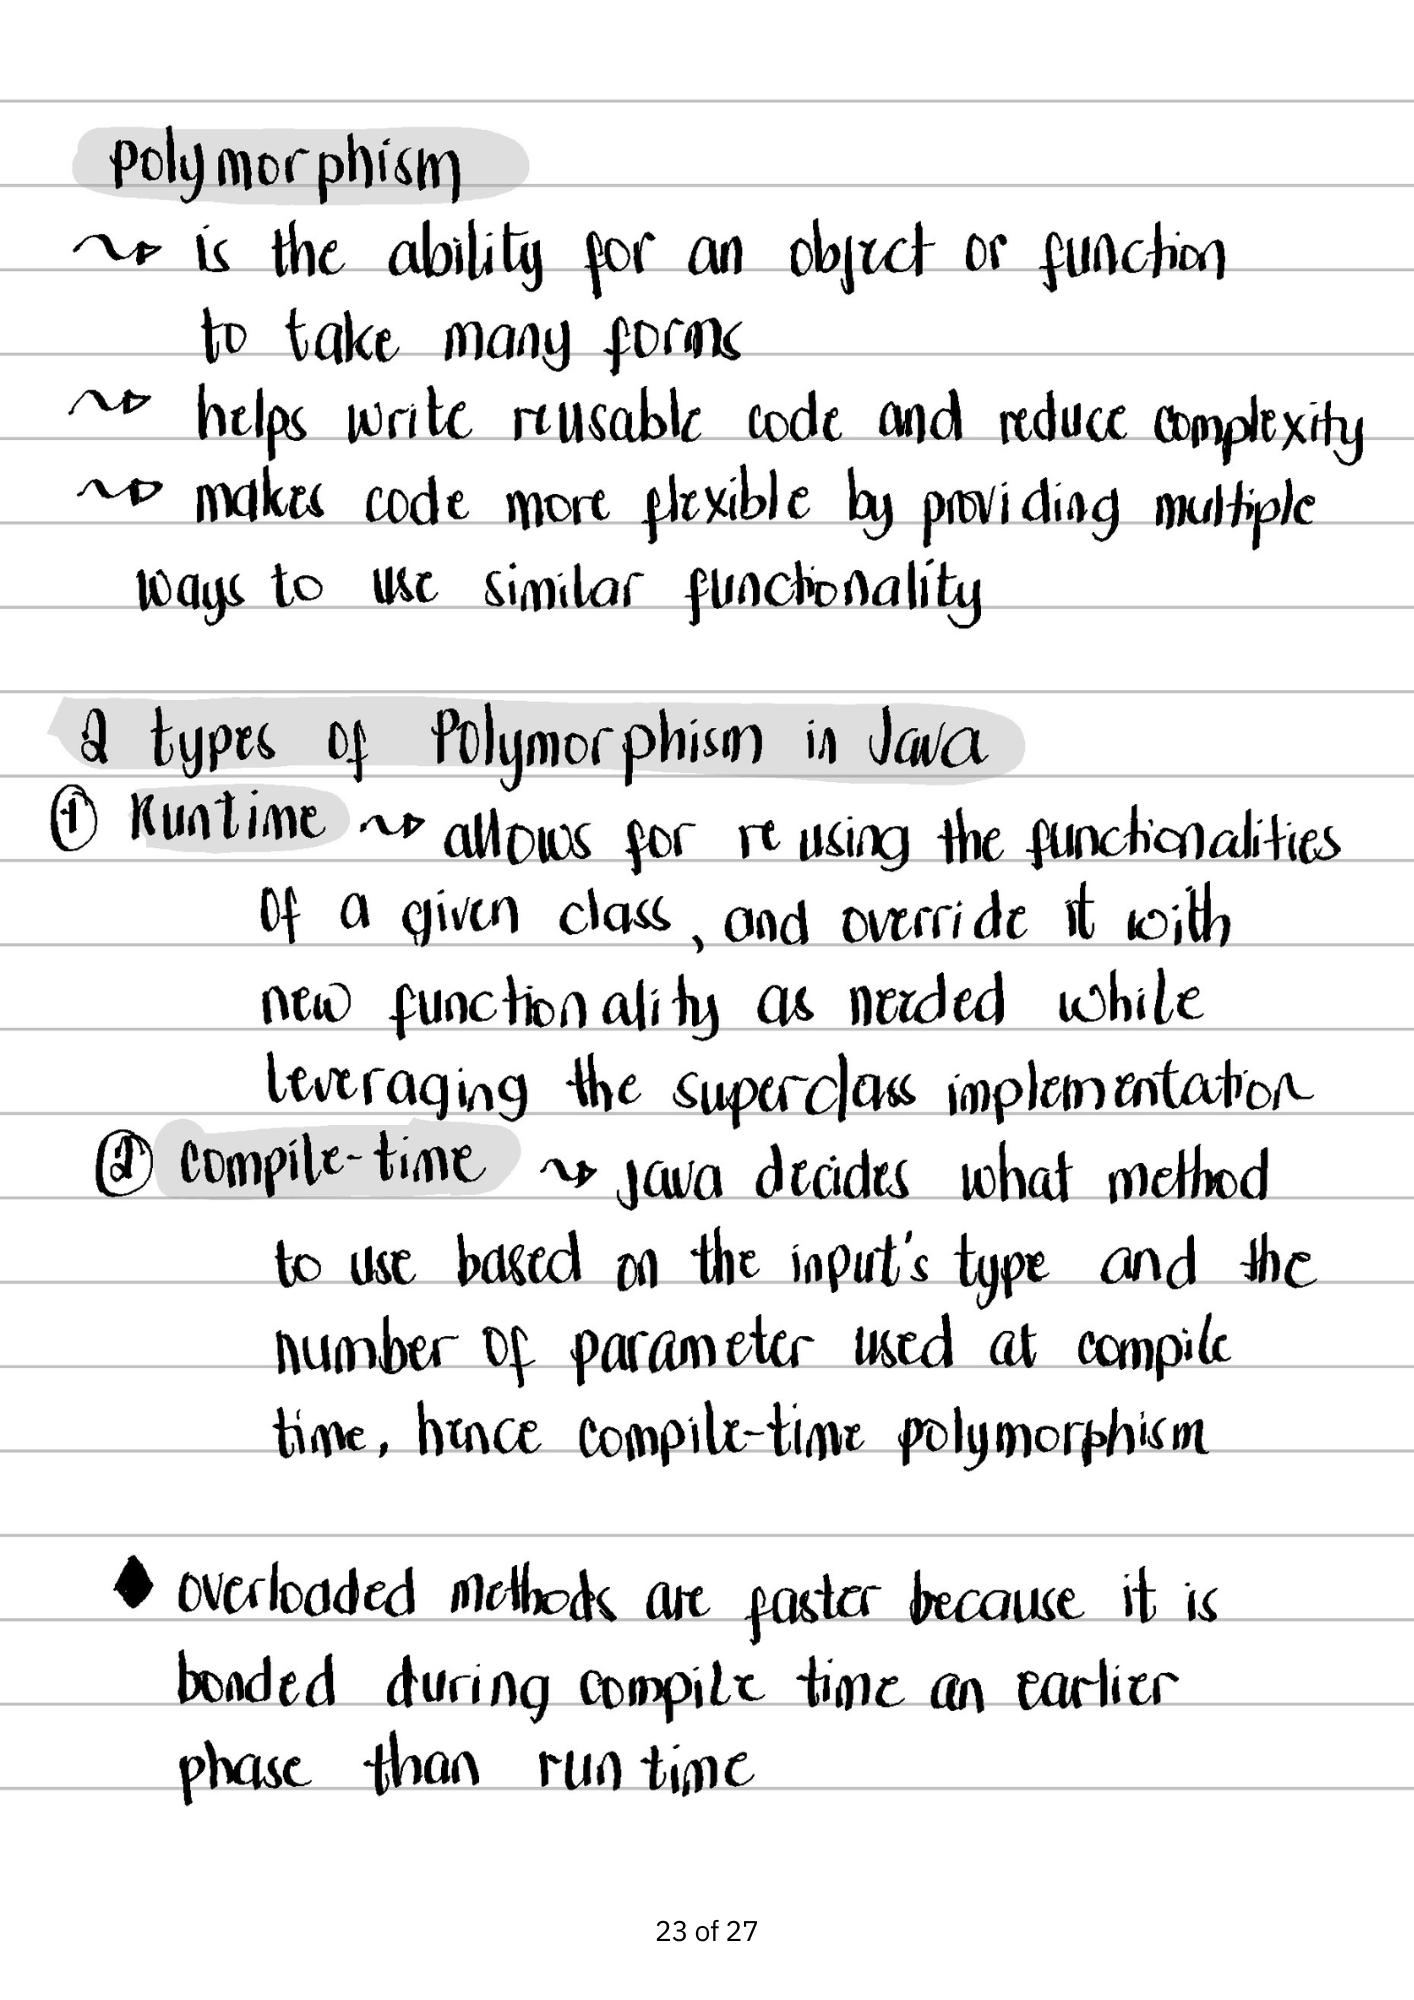 Polymorphism
is the ability for an object or function
to take many forms
helps write reusable code and reduce complexity
makes code more flexible by providing multiple
ways to use similar functionality
2 types of Polymorphism in Java
① Runtime allows for re using the functionalities
of a given class, and override it with
new functionality as needed while
leveraging the superclass implementation
② compile-time java decides what method
to use based on the input's type and the
number of parameter used at compile
time, hence compile-time polymorphism
♦ overloaded methods are faster because it is
bonded during compile time an earlier
phase than run time
23 of 27